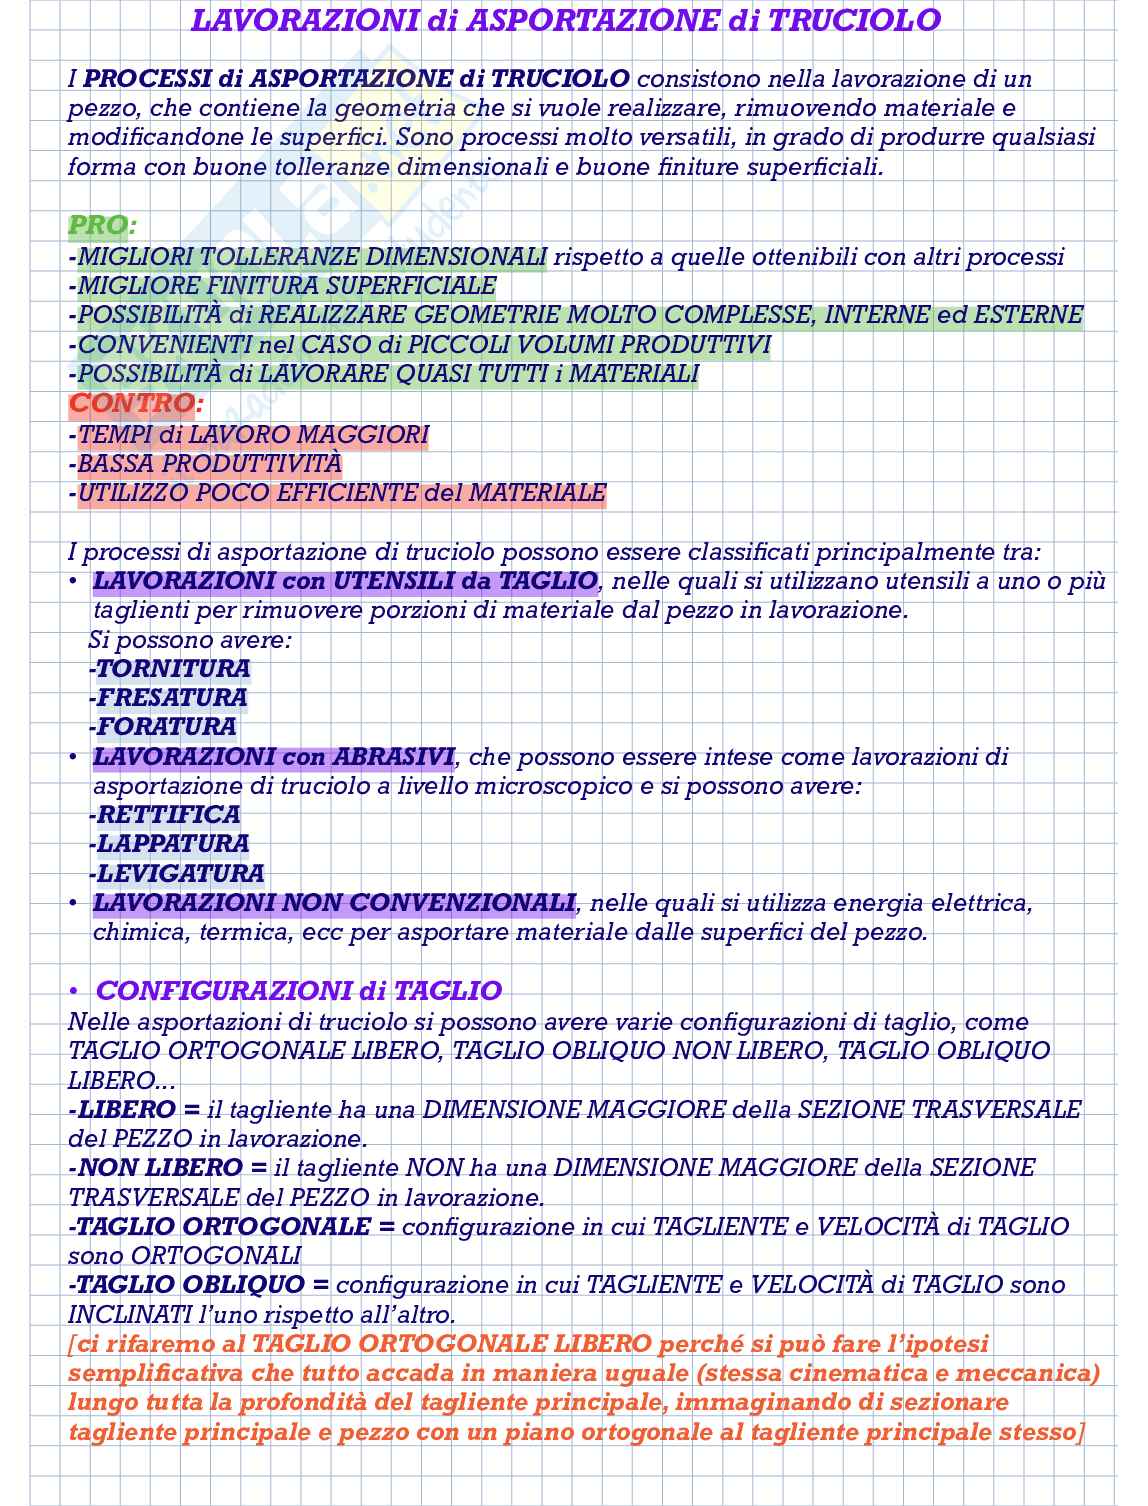 LAVORAZIONI di ASPORTAZIONE di TRUCIOLO
I PROCESSI di ASPORTAZIONE di TRUCIOLO consistono nella lavorazione di un
pezzo, che contiene la geometria che si vuole realizzare, rimuovendo materiale e
modificandone le superfici. Sono processi molto versatili, in grado di produrre qualsiasi
forma con buone tolleranze dimensionali e buone finiture superficiali.
PRO:
-MIGLIORI TOLLERANZE DIMENSIONALI rispetto a quelle ottenibili con altri processi
-MIGLIORE FINITURA SUPERFICIALE
-POSSIBILITÀ di REALIZZARE GEOMETRIE MOLTO COMPLESSE, INTERNE ed ESTERNE
-CONVENIENTI nel CASO di PICCOLI VOLUMI PRODUTTIVI
-POSSIBILITÀ di LAVORARE QUASI TUTTI i MATERIALI
CONTRO:
-TEMPI di LAVORO MAGGIORI
-BASSA PRODUTTIVITÀ
-UTILIZZO POCO EFFICIENTE del MATERIALE
I processi di asportazione di truciolo possono essere classificati principalmente tra:
• LAVORAZIONI con UTENSILI da TAGLIO, nelle quali si utilizzano utensili a uno o più
taglienti per rimuovere porzioni di materiale dal pezzo in lavorazione.
Si possono avere:
-TORNITURA
-FRESATURA
-FORATURA
• LAVORAZIONI con ABRASIVI, che possono essere intese come lavorazioni di
asportazione di truciolo a livello microscopico e si possono avere:
-RETTIFICA
-LAPPATURA
-LEVIGATURA
• LAVORAZIONI NON CONVENZIONALI, nelle quali si utilizza energia elettrica,
chimica, termica, ecc per asportare materiale dalle superfici del pezzo.
• CONFIGURAZIONI di TAGLIO
Nelle asportazioni di truciolo si possono avere varie configurazioni di taglio, come
TAGLIO ORTOGONALE LIBERO, TAGLIO OBLIQUO NON LIBERO, TAGLIO OBLIQUO
LIBERO...
-LIBERO = il tagliente ha una DIMENSIONE MAGGIORE della SEZIONE TRASVERSALE
del PEZZO in lavorazione.
-NON LIBERO = il tagliente NON ha una DIMENSIONE MAGGIORE della SEZIONE
TRASVERSALE del PEZZO in lavorazione.
-TAGLIO ORTOGONALE = configurazione in cui TAGLIENTE e VELOCITÀ di TAGLIO
sono ORTOGONALI
-TAGLIO OBLIQUO = configurazione in cui TAGLIENTE e VELOCITÀ di TAGLIO sono
INCLINATI l'uno rispetto all'altro.
[ci rifaremo al TAGLIO ORTOGONALE LIBERO perché si può fare l'ipotesi
semplificativa che tutto accada in maniera uguale (stessa cinematica e meccanica)
lungo tutta la profondità del tagliente principale, immaginando di sezionare
tagliente principale e pezzo con un piano ortogonale al tagliente principale stesso]